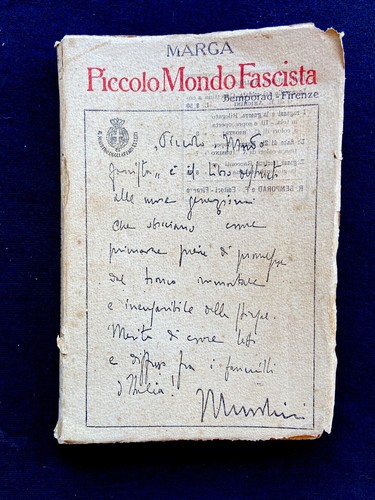 MARGA
Piccolo Mondo Fascista
Bemporad - Firenze
"Piccolo Mondo
fascista" è il libro
alle nuove generazioni
che sbocciano come
primavere piene di promesse
dal tronco immortale
e incorruttibile della stirpe.
Merita di essere letto
e diffuso fra i fanciulli
d'Italia!
Mussolini